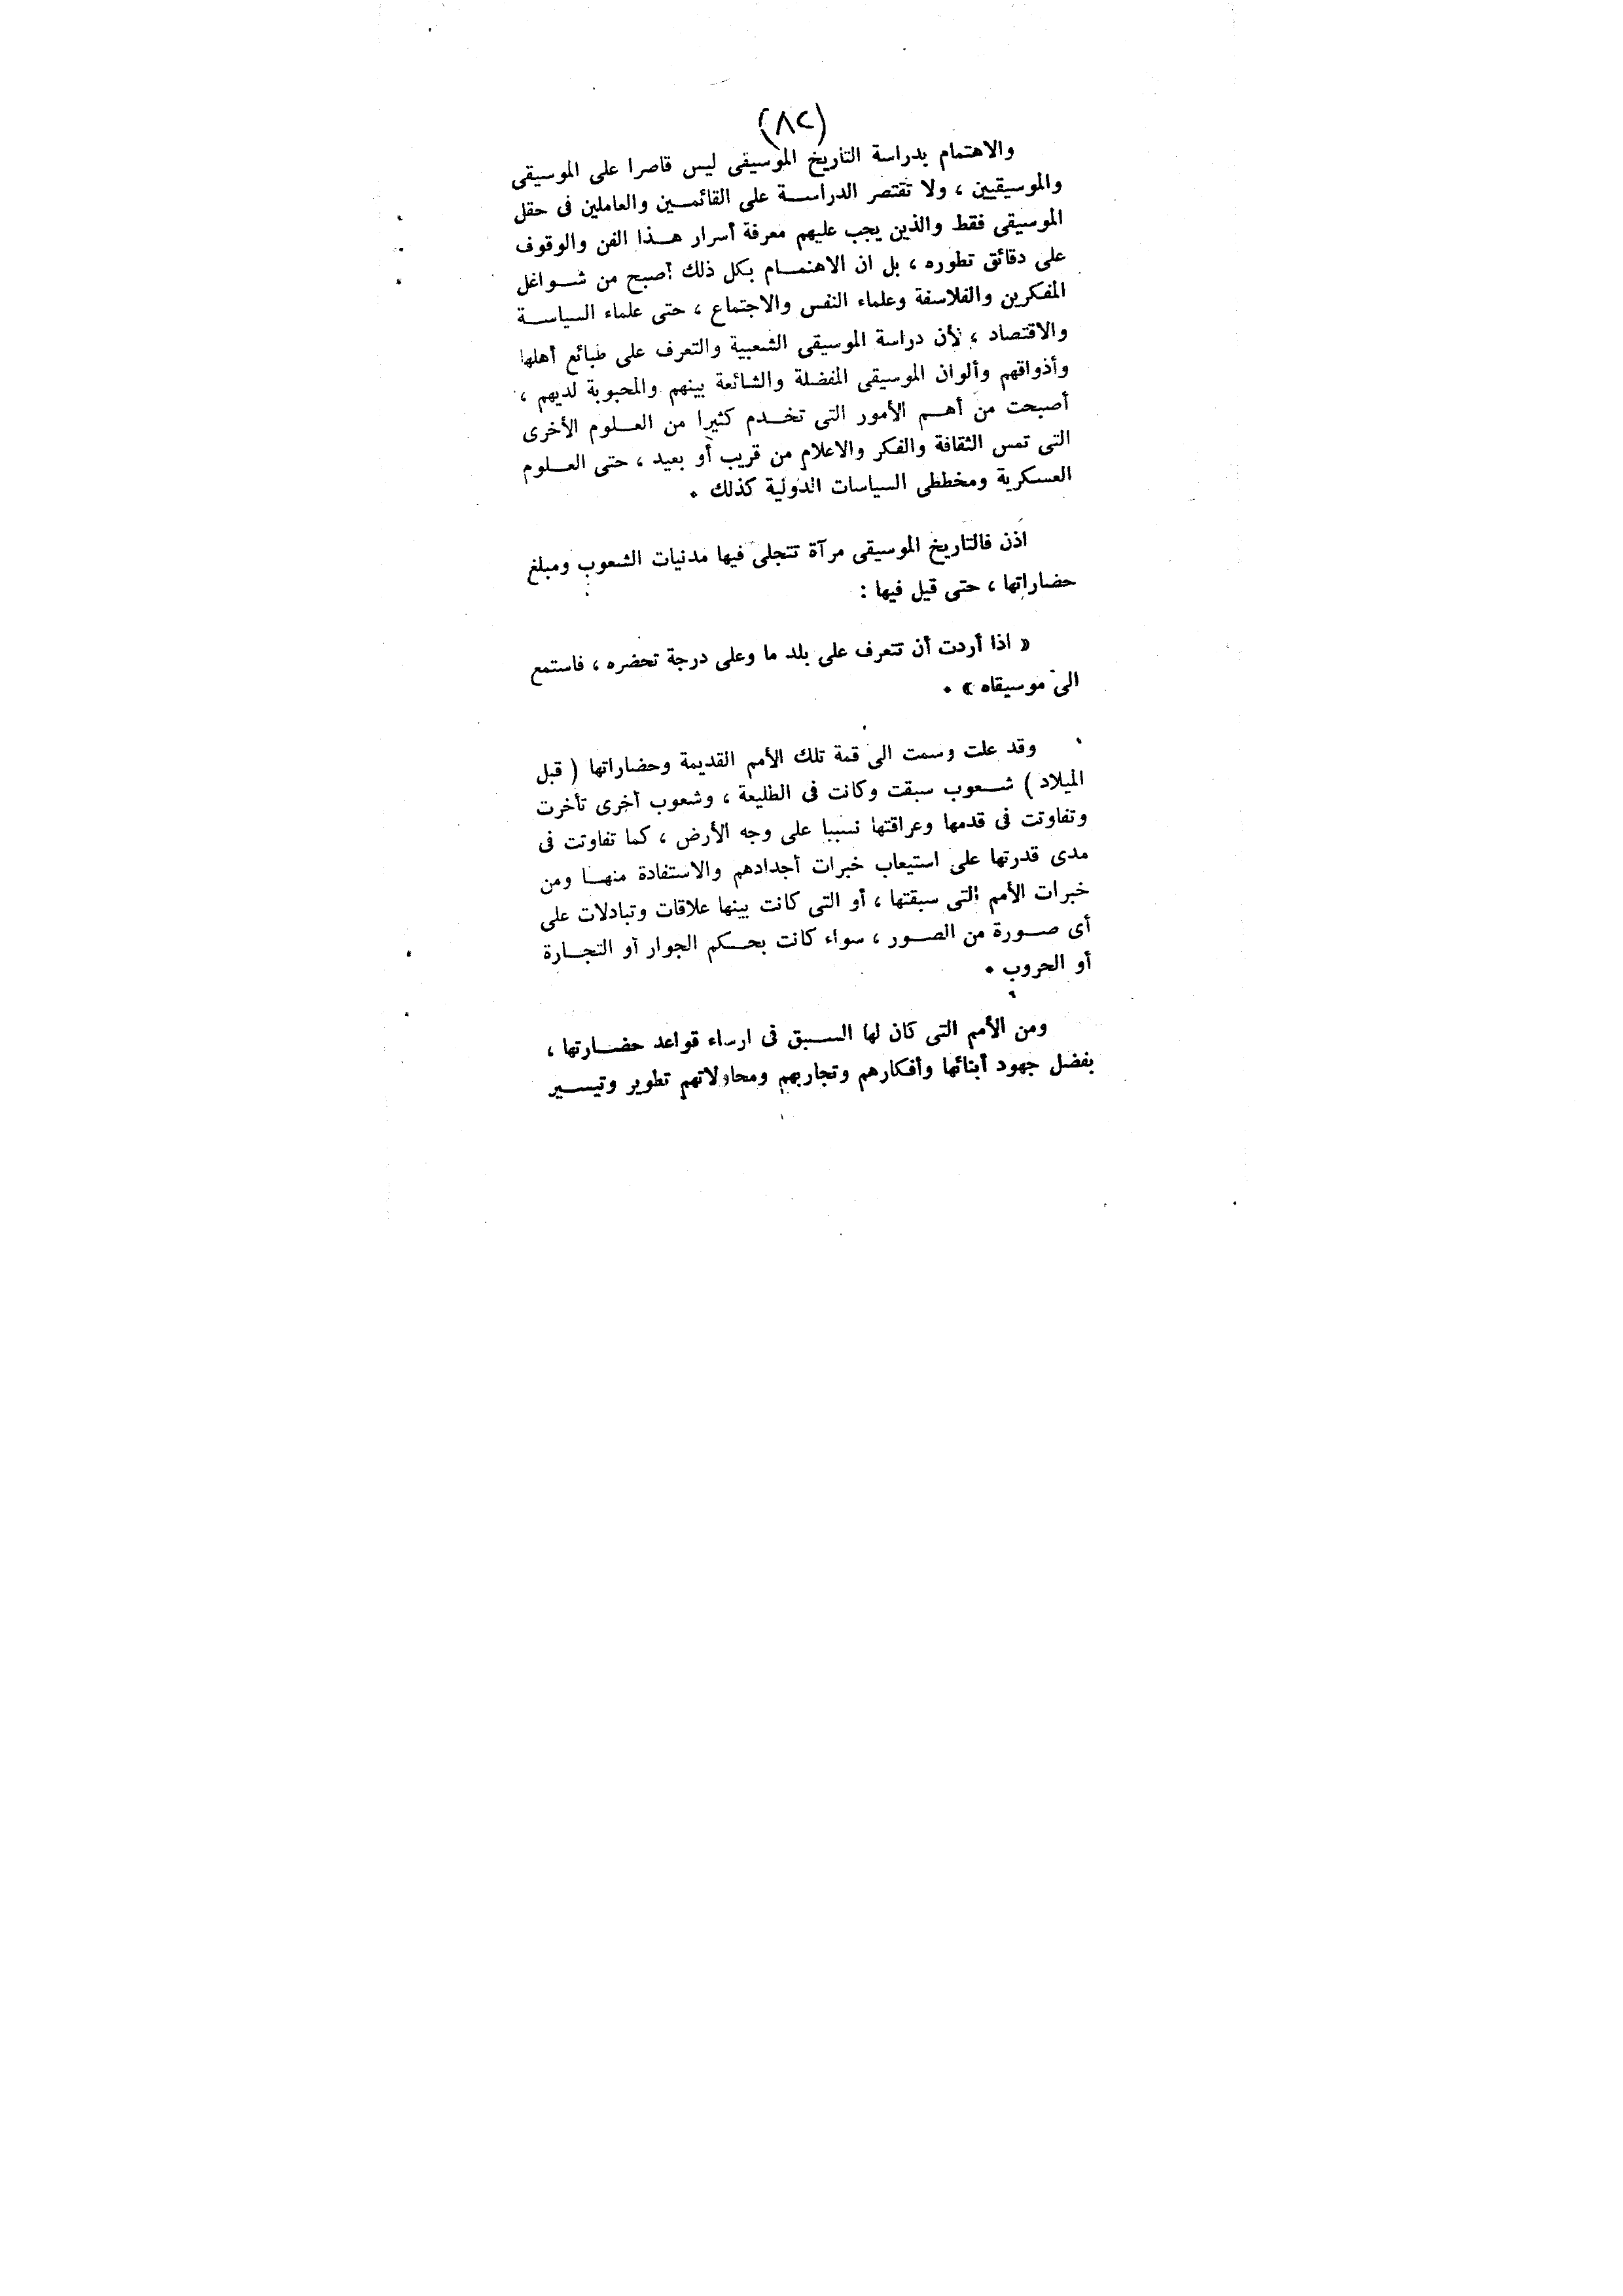 (٨٢)
والاهتمام بدراسة التاريخ الموسيقى ليس قاصرا على الموسيقى
والموسيقيين ، ولا تقتصر الدراسة على القائمين والعاملين فى حقل
الموسيقى فقط والذين يجب عليهم معرفة أسرار هذا الفن والوقوف
على دقائق تطوره ، بل ان الاهتمام بكل ذلك أصبح من شواغل
المفكرين والفلاسفة وعلماء النفس والاجتماع ، حتى علماء السياسة
والاقتصاد ، لأن دراسة الموسيقى الشعبية والتعرف على طبائع أهلها
وأذواقهم وألوان الموسيقى المفضلة والشائعة بينهم والمحبوبة لديهم ،
أصبحت من أهم الأمور التى تخدم كثيرا من العلوم الأخرى
التى تمس الثقافة والفكر والاعلام من قريب أو بعيد ، حتى العلوم
العسكرية ومخططى السياسات الدولية كذلك .
اذن فالتاريخ الموسيقى مرآة تتجلى فيها مدنيات الشعوب ومبلغ
حضاراتها ، حتى قيل فيها :
« اذا أردت أن تتعرف على بلد ما وعلى درجة تحضره ، فاستمع
الى موسيقاه » .
وقد علت وسمت الى قمة تلك الأمم القديمة وحضاراتها ( قبل
الميلاد ) شعوب سبقت وكانت فى الطليعة ، وشعوب أخرى تأخرت
وتفاوتت فى قدمها وعراقتها نسببا على وجه الأرض ، كما تفاوتت فى
مدى قدرتها على استيعاب خبرات أجدادهم والاستفادة منها ومن
خبرات الأمم التى سبقتها ، أو التى كانت بينها علاقات وتبادلات على
أى صورة من الصور ، سواء كانت بحكم الجوار أو التجارة
أو الحروب .
ومن الأمم التى كان لها السبق فى ارساء قواعد حضارتها ،
بفضل جهود أبنائها وأفكارهم وتجاربهم ومحاولاتهم تطوير وتيسير